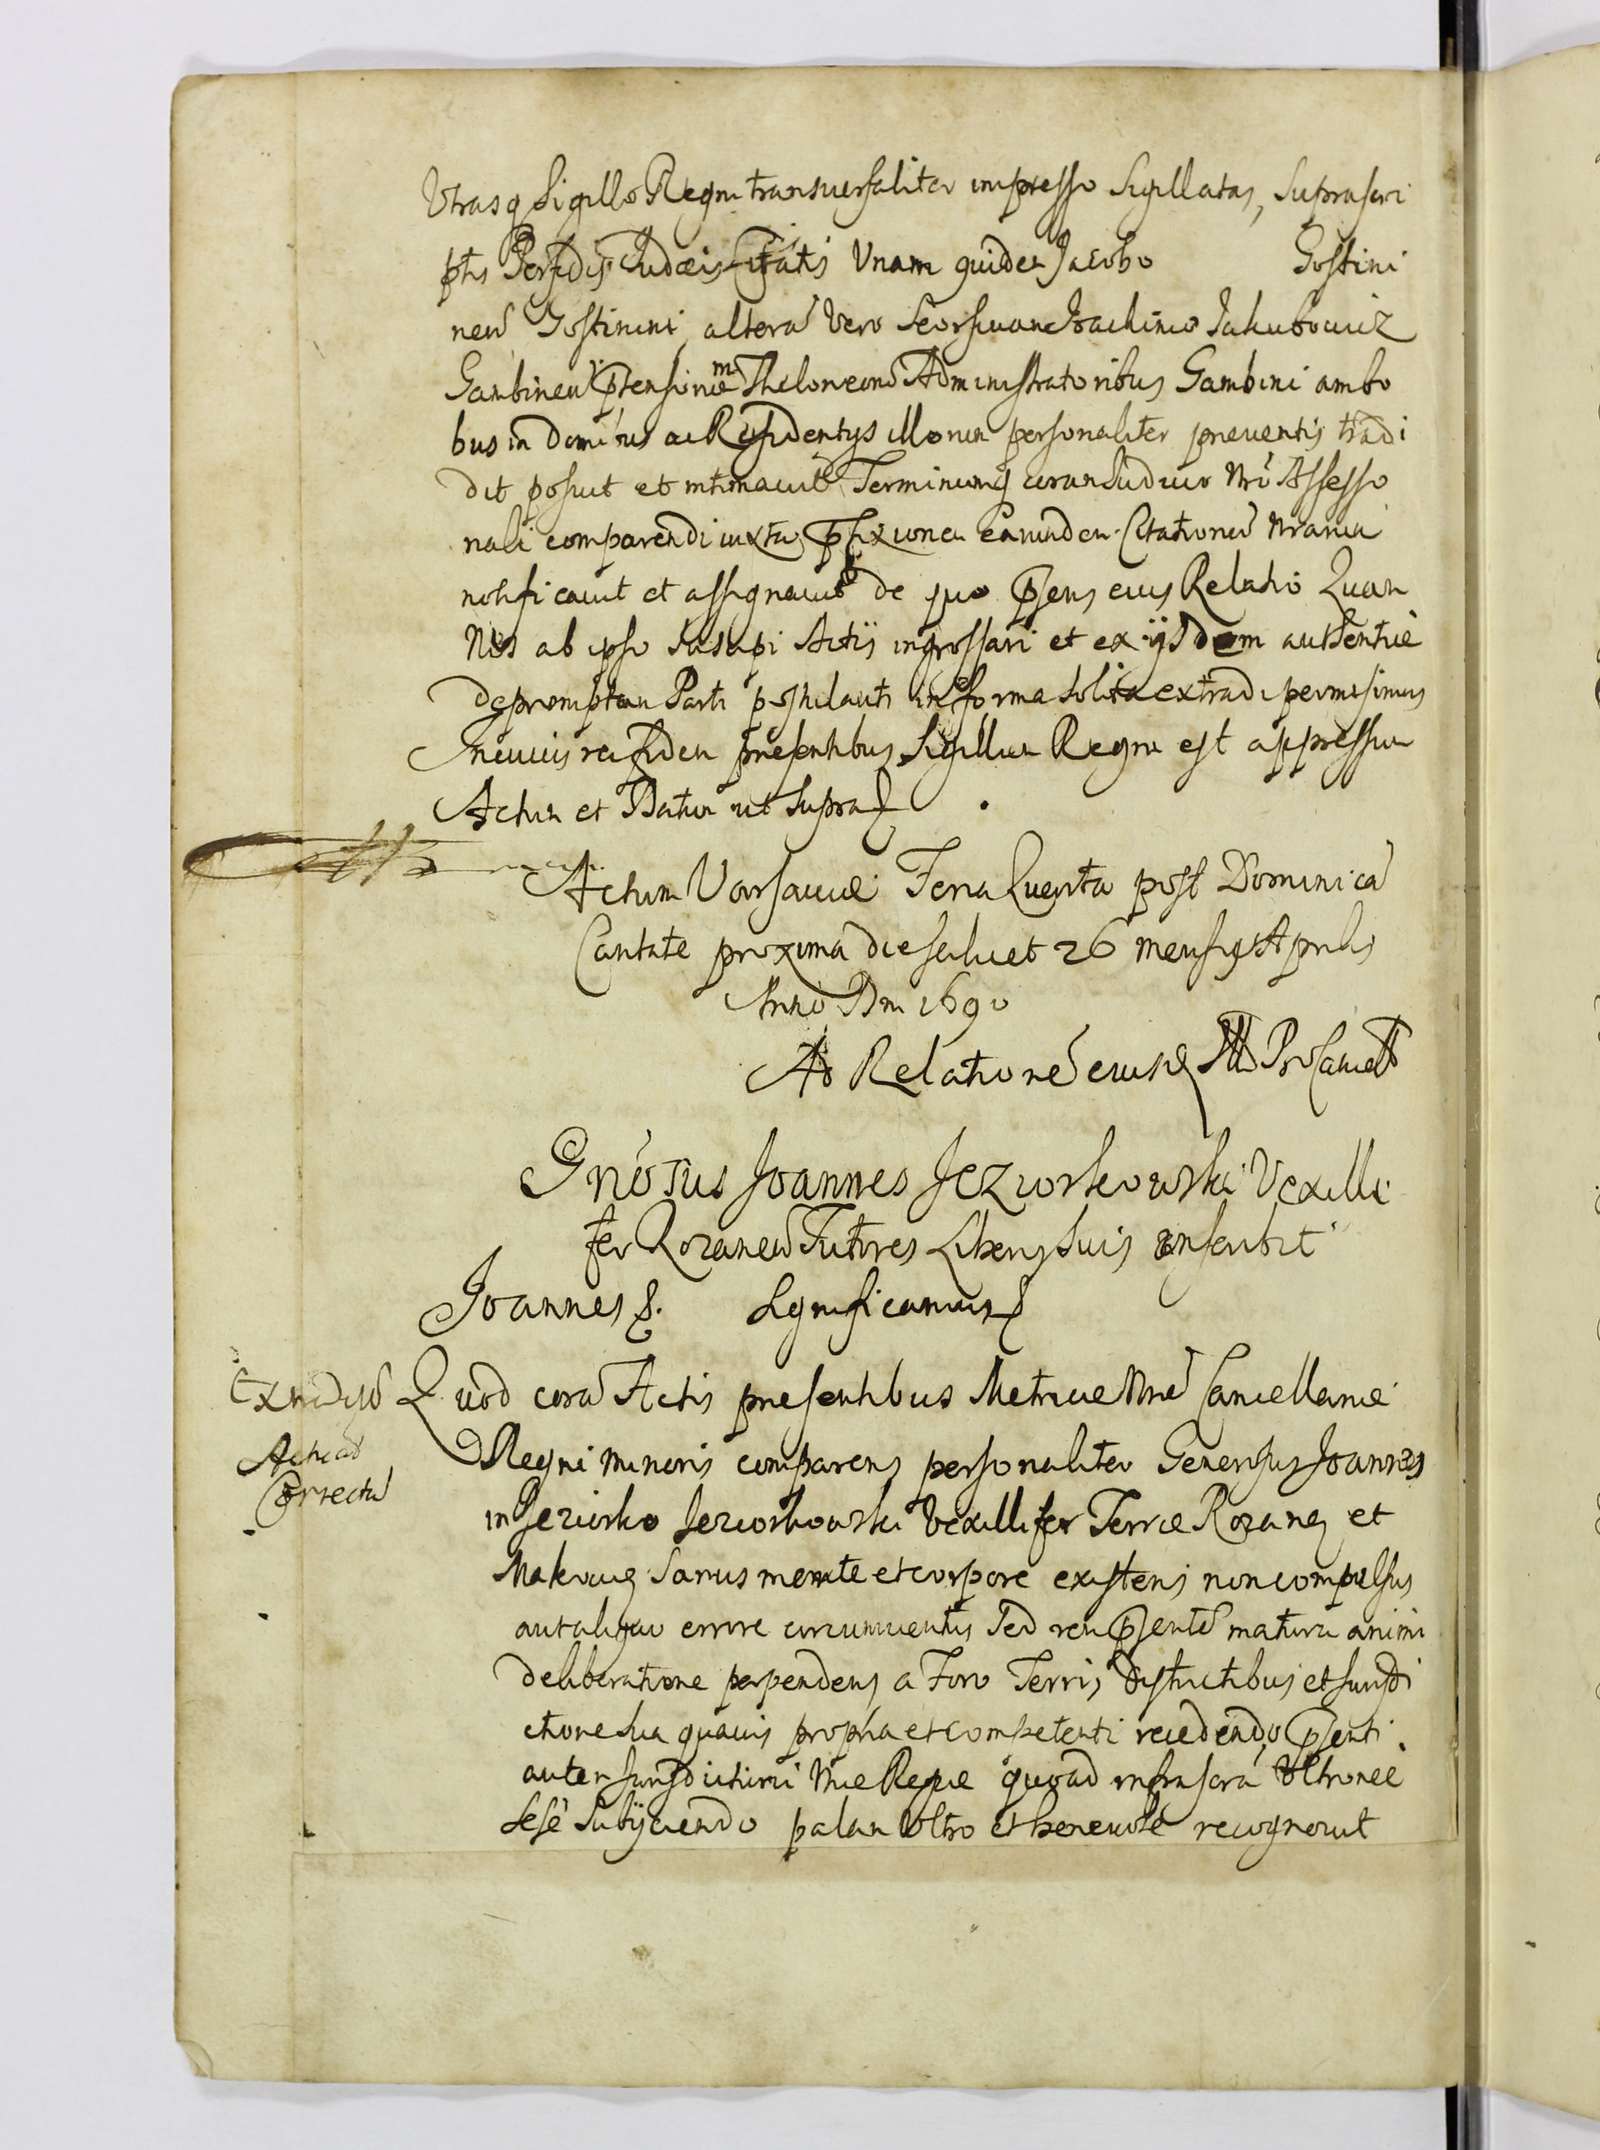 Vtrasq Sigillo Regni transuersaliter impresso Sigillatas, Suprascri
ptis Perfidis Judæis Citatis Vnam quidem Jacobo Gostini
nen Gostinini, altera vero Seorsiuam Joachimo Jakubowicz
Gambinen Theloneorum Administratoribus Gambini ambo
bus in domibus ac Residentijs illorum personaliter inuentis tradi
dit posuit et intimauit Terminumq coram Judicio Nro Assesso
riali comparendi iuxta pfixionem earundem Citationum Nrarum
notificauit et assignauit de quo psens eius Relatio Quam
Nos ab ipso Suscepi Actis ingrossari et ex ijsdem authentice
depromptam Parti postulanti in forma solita extradi permisimus
In cuius rei fidem presentibus Sigillum Regni est appressum
Actum et Datum ut supra
Actum Varsauiæ Feria Quarta post Dominica
Cantate proxima die scilicet 26 mensis Aprilis
Anno Dni 1690
Ad Relatione eiusd Illi ProCancell
Gnosus Joannes Jeziorkowski Vexilli
fer Rozanen Tutores Liberis Suis inscribit
Joannes Significamus
Quod cora Actis presentibus Metrices Nræ Cancellariæ
Extradit
Acticat
Correctu
Regni minoris comparens personaliter Generosus Joannes
in Jeziorko Jeziorkowski Vexillifer Terræ Rozanen et
Makouien Sanus mente et corpore existens non compulsus
aut aliquo errore circumuentus Sed rem psente matura animi
deliberatione perpendens a Foro Terris, districtibus et Jurisdi
ctione Sua quauis propria et competenti recedendo psenti
autem Jurisdictioni Nræ Regiæ quoad infrascra Vltronee
Sese Subijciendo palam Vltro et beneuole recognouit